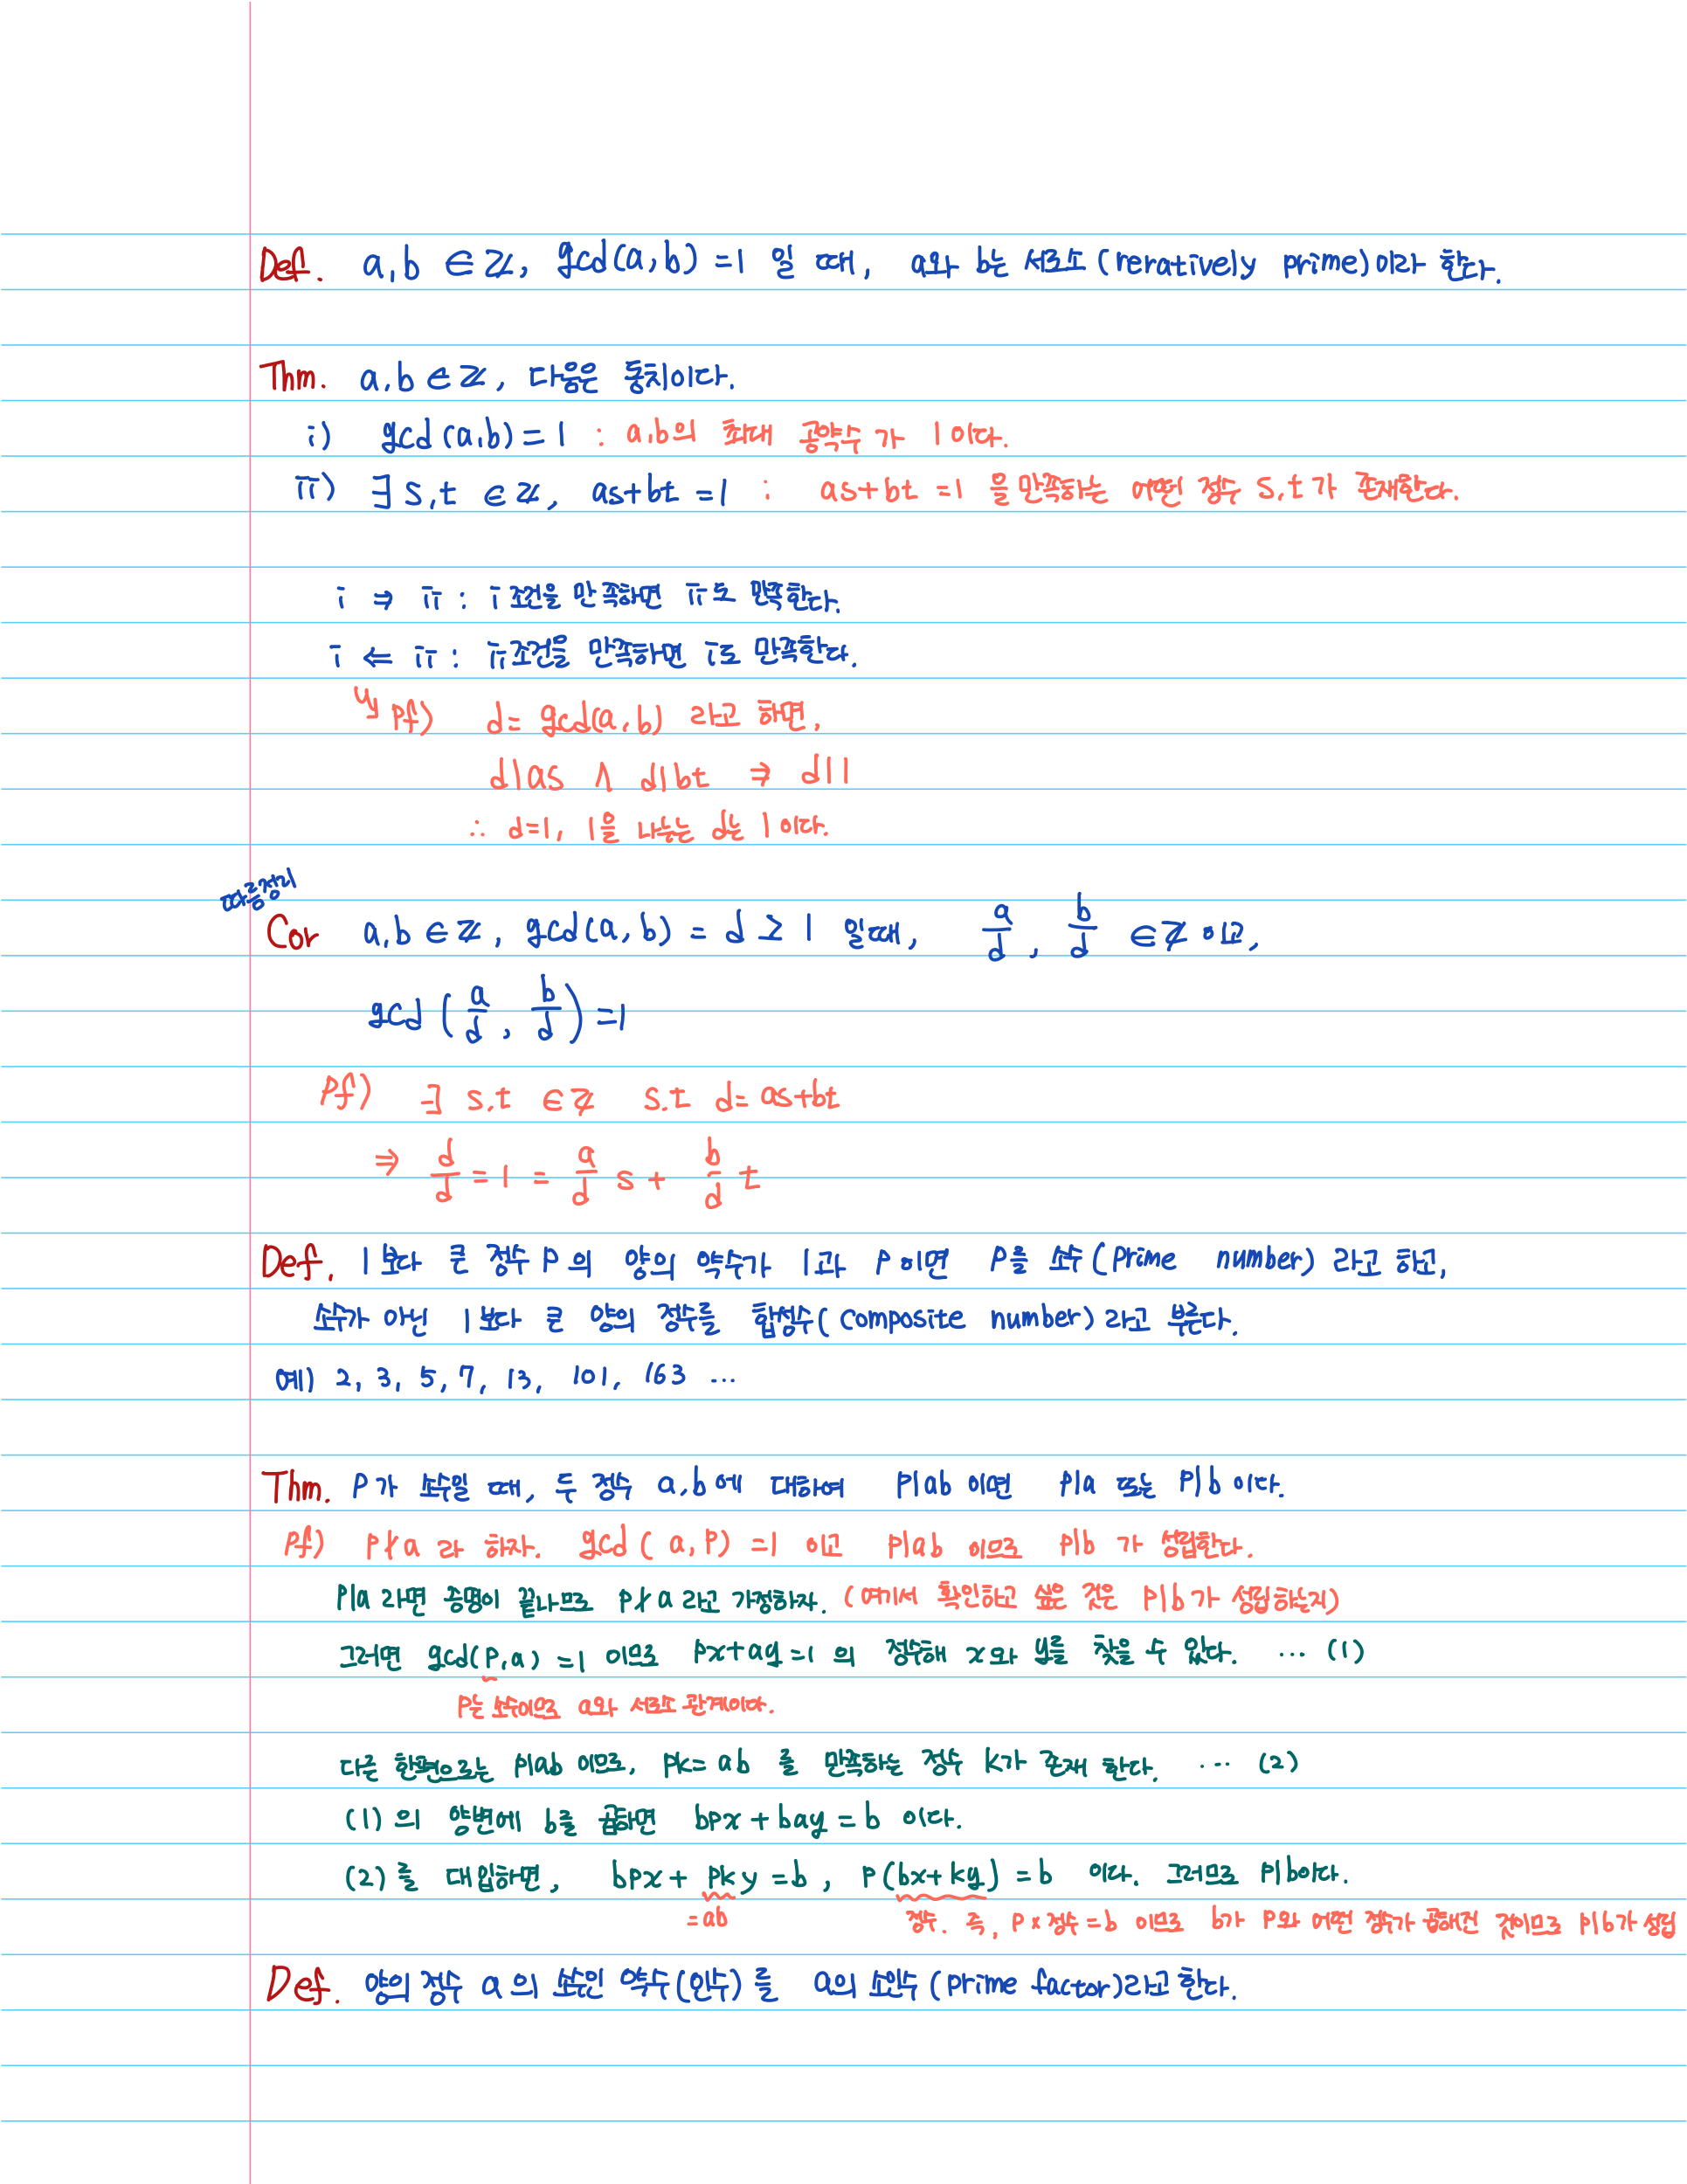 Def. a,b ∈ ℤ, gcd(a,b) = 1 일 때, a와 b는 서로소 (reratively prime)이라 한다.
Thm. a,b ∈ ℤ, 다음은 동치이다.
i) gcd(a,b) = 1 : a,b의 최대 공약수가 1이다.
ii) ∃ s,t ∈ ℤ, as+bt = 1 : as+bt = 1 을 만족하는 어떤 정수 s,t가 존재한다.
i ⇒ ii : i 조건을 만족하면 ii도 만족한다.
i ⇐ ii : ii조건을 만족하면 i도 만족한다.
pf) d = gcd(a,b) 라고 하면,
d|as ∧ d|bt ⇒ d|1
∴ d=1, 1을 나눗는 d는 1이다.
따름정리
Cor a,b ∈ ℤ, gcd(a,b) = d ≥ 1 일때, a/d, b/d ∈ ℤ 이고,
gcd (a/d, b/d) = 1
Pf) ∃ s,t ∈ ℤ s.t d = as+bt
⇒ d/d = 1 = a/d s + b/d t
Def. 1보다 큰 정수 P의 양의 약수가 1과 P이면 P을 소수 (Prime number) 라고 하고,
소수가 아닌 1보다 큰 양의 정수를 합성수 (composite number) 라고 부른다.
예) 2, 3, 5, 7, 13, 101, 163 ...
Thm. P가 소수일 때, 두 정수 a,b에 대하여 P|ab 이면 P|a 또는 P|b 이다.
Pf) P∤a 라 하자. gcd(a,P) = 1 이고 P|ab 이므로 P|b 가 성립한다.
P|a 라면 증명이 끝나므로 P∤a 라고 가정하자. (여기서 확인하고 싶은 것은 P|b가 성립하는지)
그러면 gcd(P,a) = 1 이므로 px+ay=1 의 정수해 x와 y를 찾을 수 있다. ... (1)
P는 소수이므로 a와 서로소 관계이다.
다른 한편으로는 P|ab 이므로, pk = ab 를 만족하는 정수 k가 존재 한다. ... (2)
(1)의 양변에 b를 곱하면 bpx + bay = b 이다.
(2)를 대입하면, bpx + pky = b, P(bx+ky) = b 이다. 그러므로 P|b이다.
=ab 정수. 즉, P×정수=b 이므로 b가 P와 어떤 정수가 곱해진 것이므로 P|b가 성립
Def. 양의 정수 a의 소수인 약수(인수)를 a의 소인수 (prime factor)라고 한다.